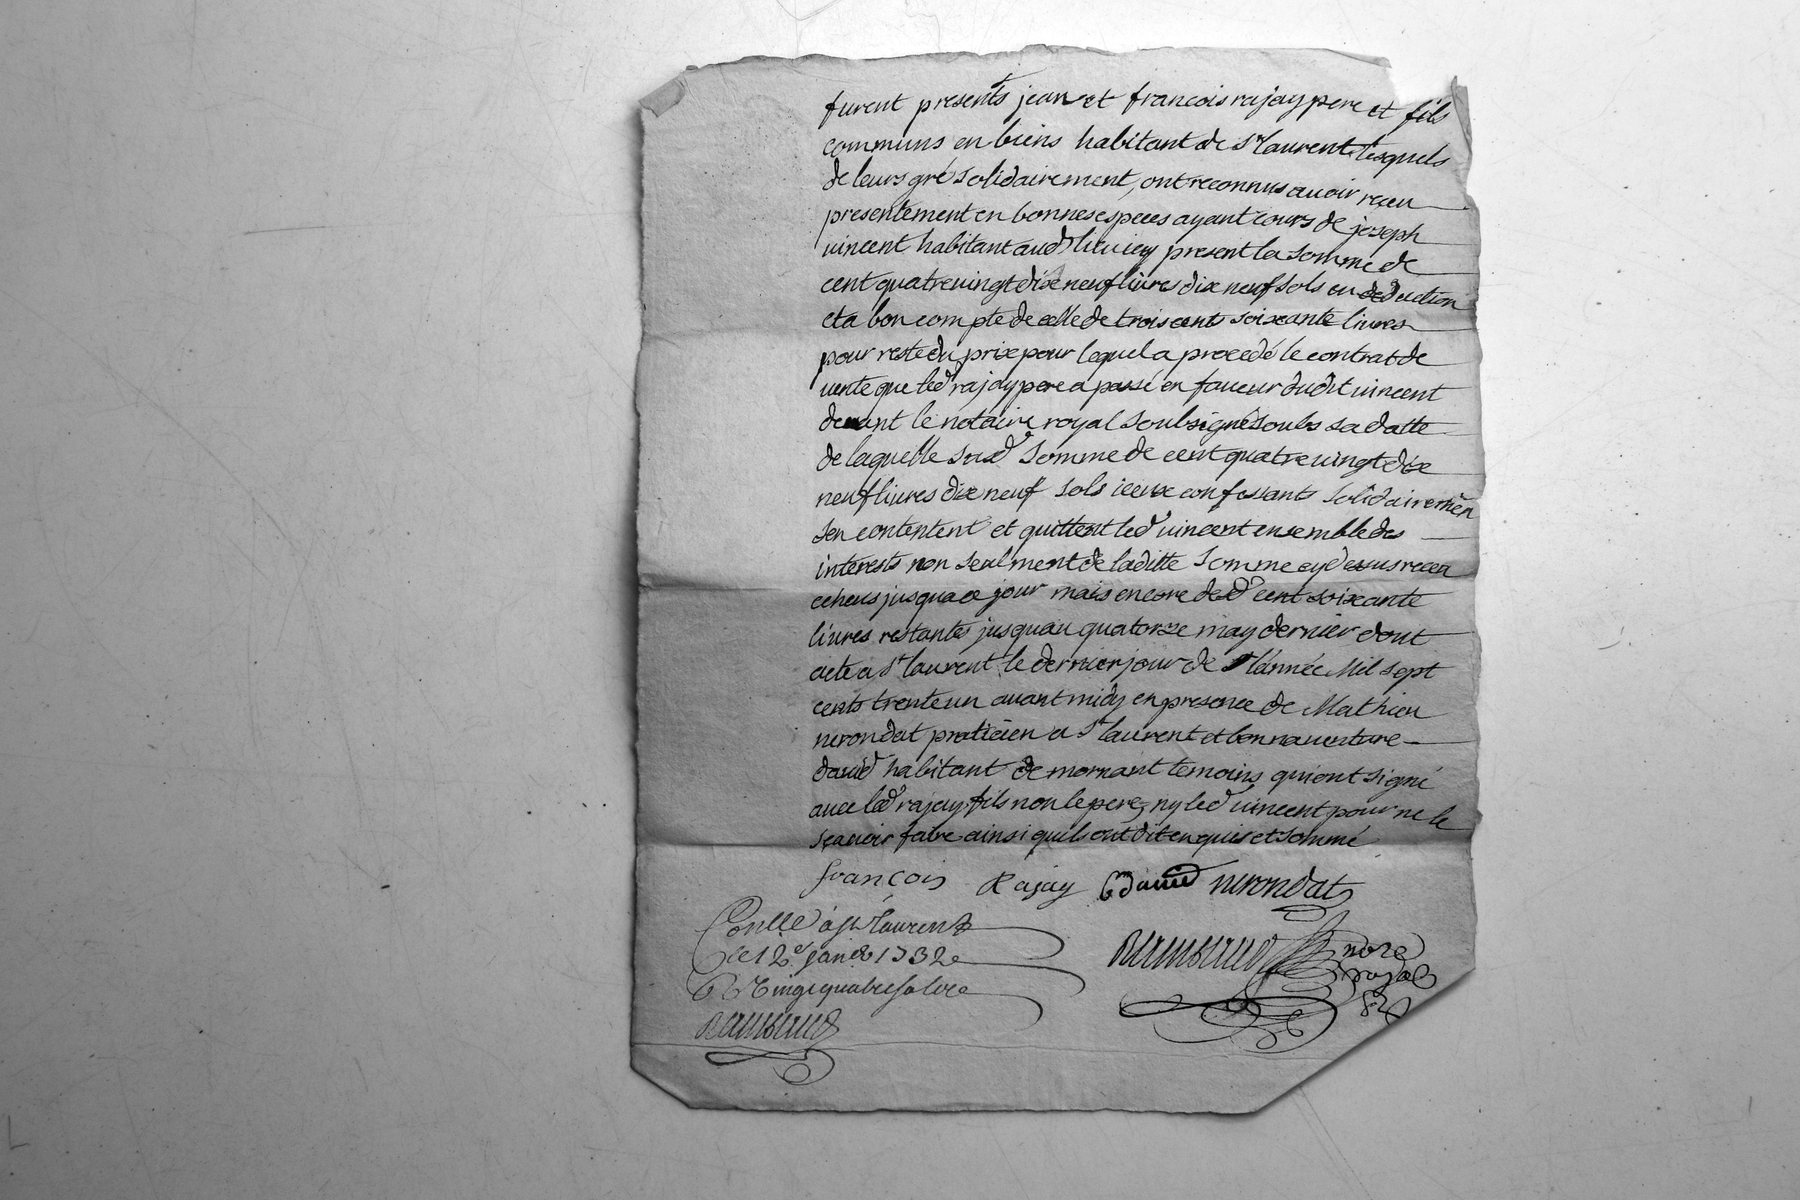 furent presents jean et francois rajay pere et fils
communs en biens habitant de st laurent lesquels
de leurs gré solidairement, ont reconnus avoir receu
presentement en bonnes especes ayant cours de joseph
vincent habitant aud lieu icy present la somme de
cent quatre vingt dix neuf livres dix neuf sols en deduction
et a bon compte de celle de trois cents soixante livres
pour reste du prix pour lequel a procedé le contrat de
vente que led rajay pere a passé en faveur dudit vincent
devant le notaire royal soubsigné soubs sa datte
de laquelle susd somme de cent quatre vingt dix
neuf livres dix neuf sols iceux confessants solidairement
sen contentent et quittent led vincent ensemble des
interests non seulment de laditte somme cydessus receu
echeus jusqua ce jour mais encore desd cent soixante
livres restantes jusquau quatorze may dernier dont
acte a st laurent le dernier jour de l'année Mil sept
cents trente un avant midy en presence de Mathieu
nerondat praticien a st laurent et bonnaventure
david habitant de mornant temoins qui ont signé
avec led rajay fils non le pere, ny led vincent pour ne le
sçavoir faire ainsi quils ont dit enquis et sommé
françois Rajay b david nerondat
Conllé à st Laurent
le 12e janv 1732
R vingt quatre sols
nore
royal